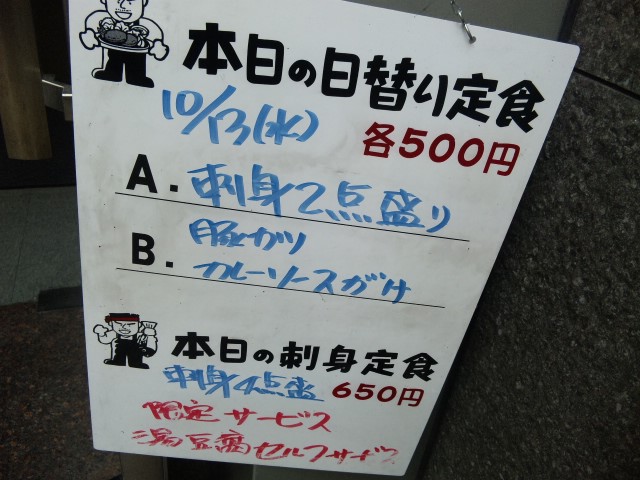 本日の日替り定食
10/13(水)
各500円
A. 刺身2点盛り
豚カツ
B. カレーソースがけ
本日の刺身定食
刺身4点盛 650円
限定サービス
湯豆腐セルフサービス